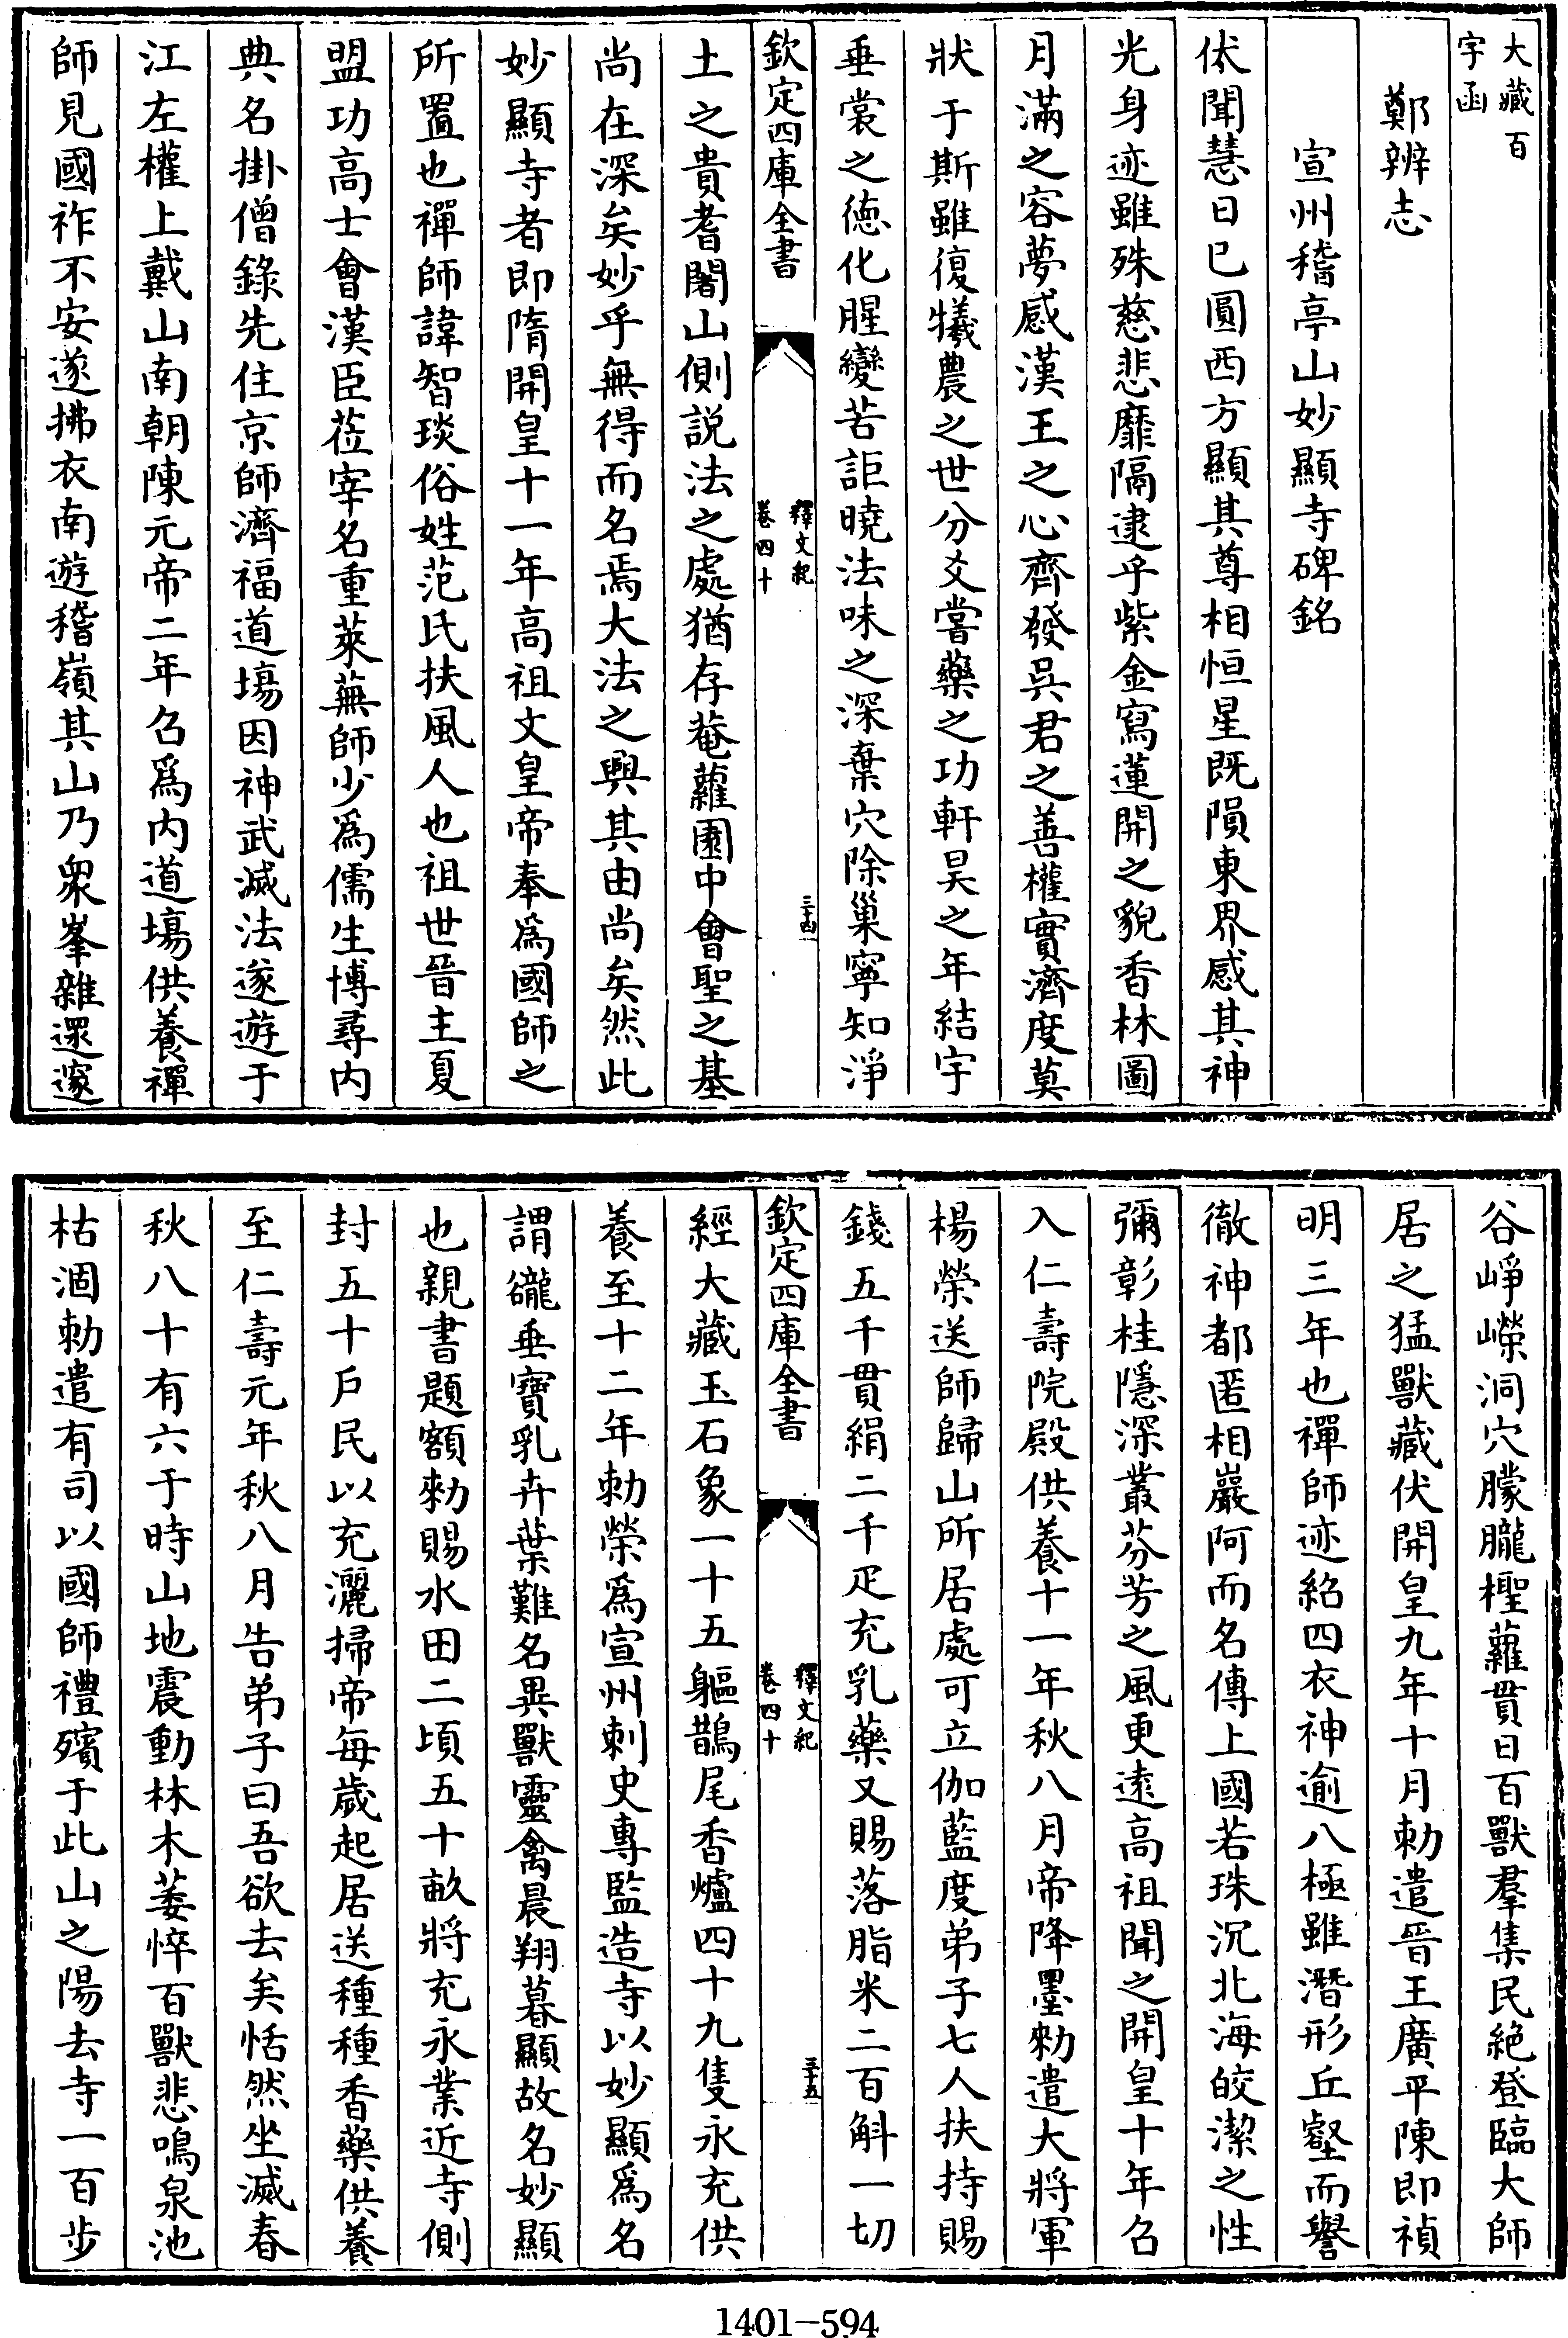 大藏百
字函
鄭辨志
宣州稽亭山妙顯寺碑銘
伏聞慧日已圓西方顯其尊相恒星既隕東界感其神
光身迹雖殊慈悲靡隔逮乎紫金寫蓮開之貌香林圖
月滿之容夢感漢王之心齊發呉君之善權實濟度莫
狀于斯雖復犧農之世分爻嘗藥之功軒昊之年結宇
垂裳之徳化腥變苦詎曉法味之深棄穴除巢寧知淨
欽定四庫全書
釋文紀
卷四十
三十四
土之貴耆闍山側説法之處猶存菴蘿園中會聖之基
尚在深矣妙乎無得而名焉大法之興其由尚矣然此
妙顯寺者即隋開皇十一年高祖文皇帝奉爲國師之
所置也禪師諱智琰俗姓范氏扶風人也祖世晉主夏
盟功高士會漢臣莅宰名重萊蕪師少爲儒生博尋内
典名掛僧錄先住京師濟福道場因神武滅法遂遊于
江左權上戴山南朝陳元帝二年召爲内道場供養禪
師見國祚不安遂拂衣南遊稽嶺其山乃衆峯雜遝邃
谷崢嶸洞穴朦朧檉蘿貫日百獸羣集民絶登臨大師
居之猛獸藏伏開皇九年十月勅遣晉王廣平陳即禎
明三年也禪師迹紹四衣神逾八極雖潛形丘壑而譽
徹神都匿相巖阿而名傳上國若珠沉北海皎潔之性
彌彰桂隱深叢芬芳之風更遠高祖聞之開皇十年召
入仁壽院殿供養十一年秋八月帝降墨勅遣大將軍
楊榮送師歸山所居處可立伽藍度弟子七人扶持賜
錢五千貫絹二千疋充乳藥又賜落脂米二百斛一切
欽定四庫全書
釋文紀
卷四十
三十五
經大藏玉石象一十五軀鵲尾香爐四十九隻永充供
養至十二年勅榮爲宣州刺史專監造寺以妙顯爲名
謂巃垂寶乳卉葉難名異獸靈禽晨翔暮顯故名妙顯
也親書題額勅賜水田二頃五十畝將充永業近寺側
封五十戸民以充灑掃帝每歲起居送種種香藥供養
至仁壽元年秋八月告弟子曰吾欲去矣恬然坐滅春
秋八十有六于時山地震動林木萎悴百獸悲鳴泉池
枯涸勅遣有司以國師禮殯于此山之陽去寺一百步
1401-594